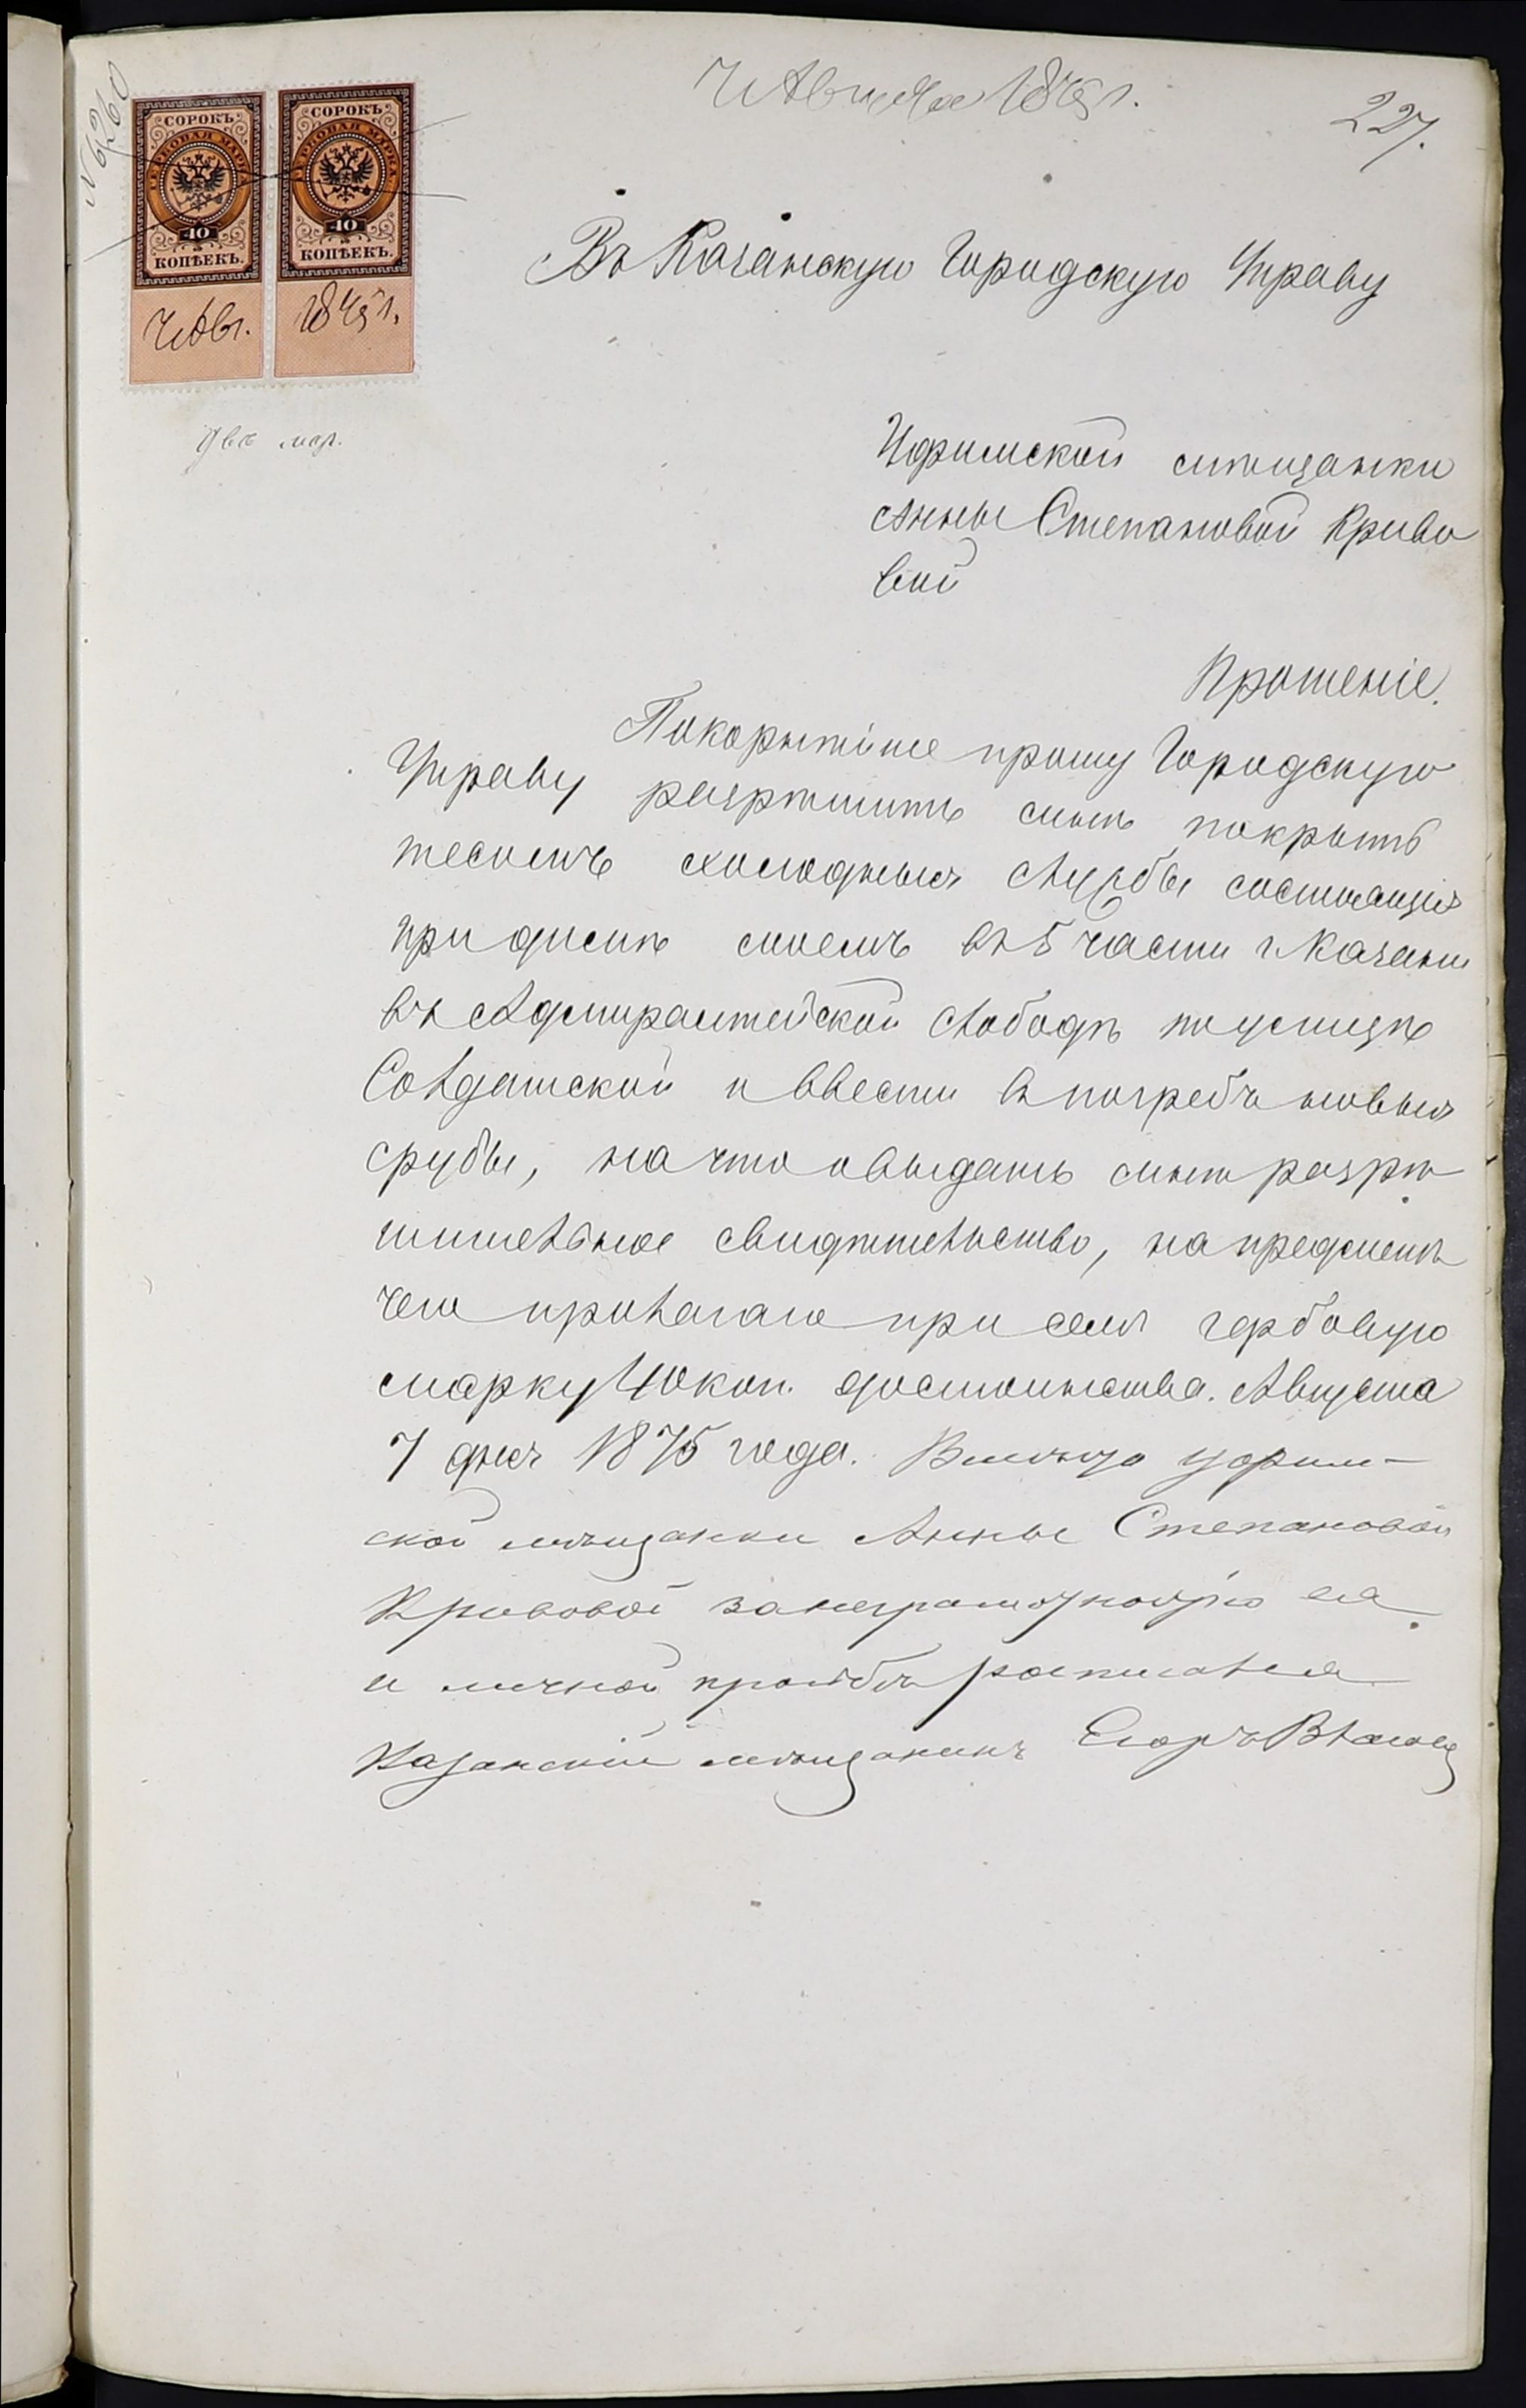 7 Августа 1875 г.
227.
N 6260
СОРОКЪ
ГЕРБОВАЯ МАРКА
40
КОПѢЕКЪ.
СОРОКЪ
ГЕРБОВАЯ МАРКА
40
КОПѢЕКЪ.
7 Авг. 1875 г.
Двѣ мар.
Въ Казанскую Городскую Управу
Уфимской мѣщанки
Анны Степановой Криво
вой
Прошеніе.
Покорнѣйше прошу Городскую
Управу разрѣшить мнѣ покрыть
тесомъ холодныя службы состоящія
при домѣ моемъ въ 5 части г. Казани
въ Адмиралтейской слободѣ по улицѣ
Солдатской и ввести в погребъ новыя
срубы, на что и выдать мнѣ разрѣ
шительное свидѣтельство, на предметъ
чего прилагаю при семъ гербовую
марку 40 коп. достоинства. Августа
7 дня 1875 года. Вместо уфим-
ской мѣщанки Анны Степановой
Кривовой за неграмотностію ея
и личной прозьбѣ росписался
Казанскій мѣщанинъ Егоръ